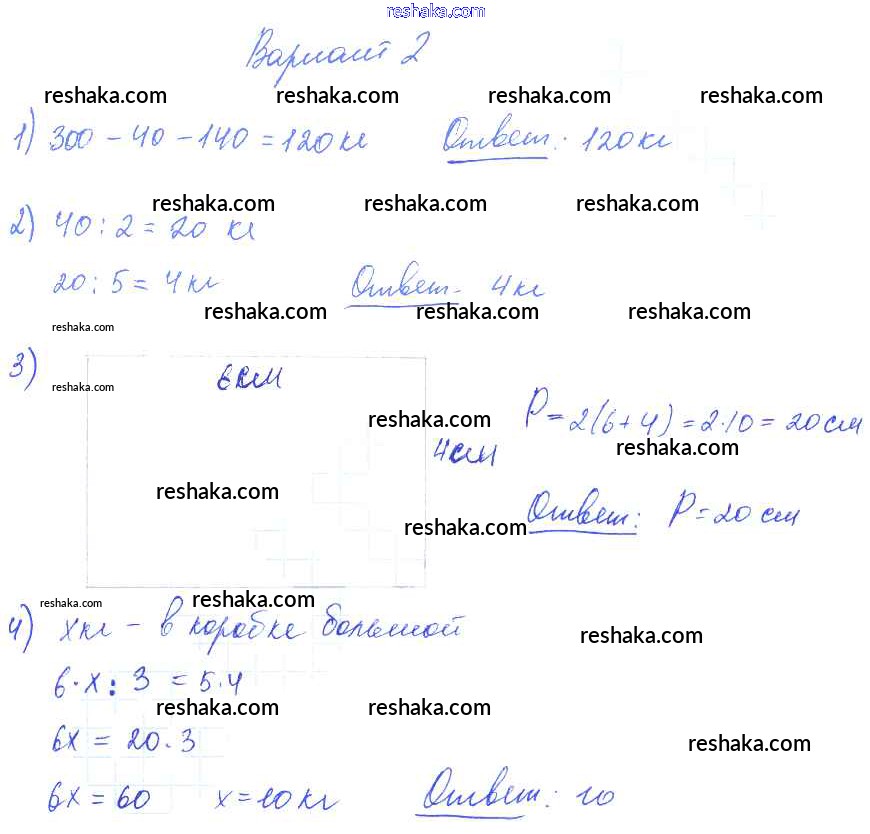 reshaka.com
Вариант 2
reshaka.com reshaka.com reshaka.com reshaka.com
1) 300 - 40 - 140 = 120 кг Ответ: 120 кг
reshaka.com reshaka.com reshaka.com
2) 40 : 2 = 20 кг
20 : 5 = 4 кг Ответ. 4 кг
reshaka.com reshaka.com reshaka.com
reshaka.com
3) 6 см
reshaka.com
reshaka.com
P = 2(6+4) = 2·10 = 20 см
4 см
reshaka.com
reshaka.com
reshaka.com
Ответ: P = 20 см
reshaka.com reshaka.com
4) x кг - в коробке большой
reshaka.com
6·x : 3 = 5·4
reshaka.com reshaka.com
6x = 20·3
reshaka.com
6x = 60 x = 10 кг Ответ: 10